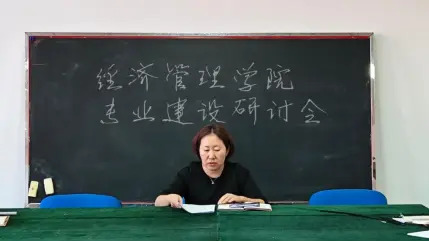 经济管理学院
专业建设研讨会